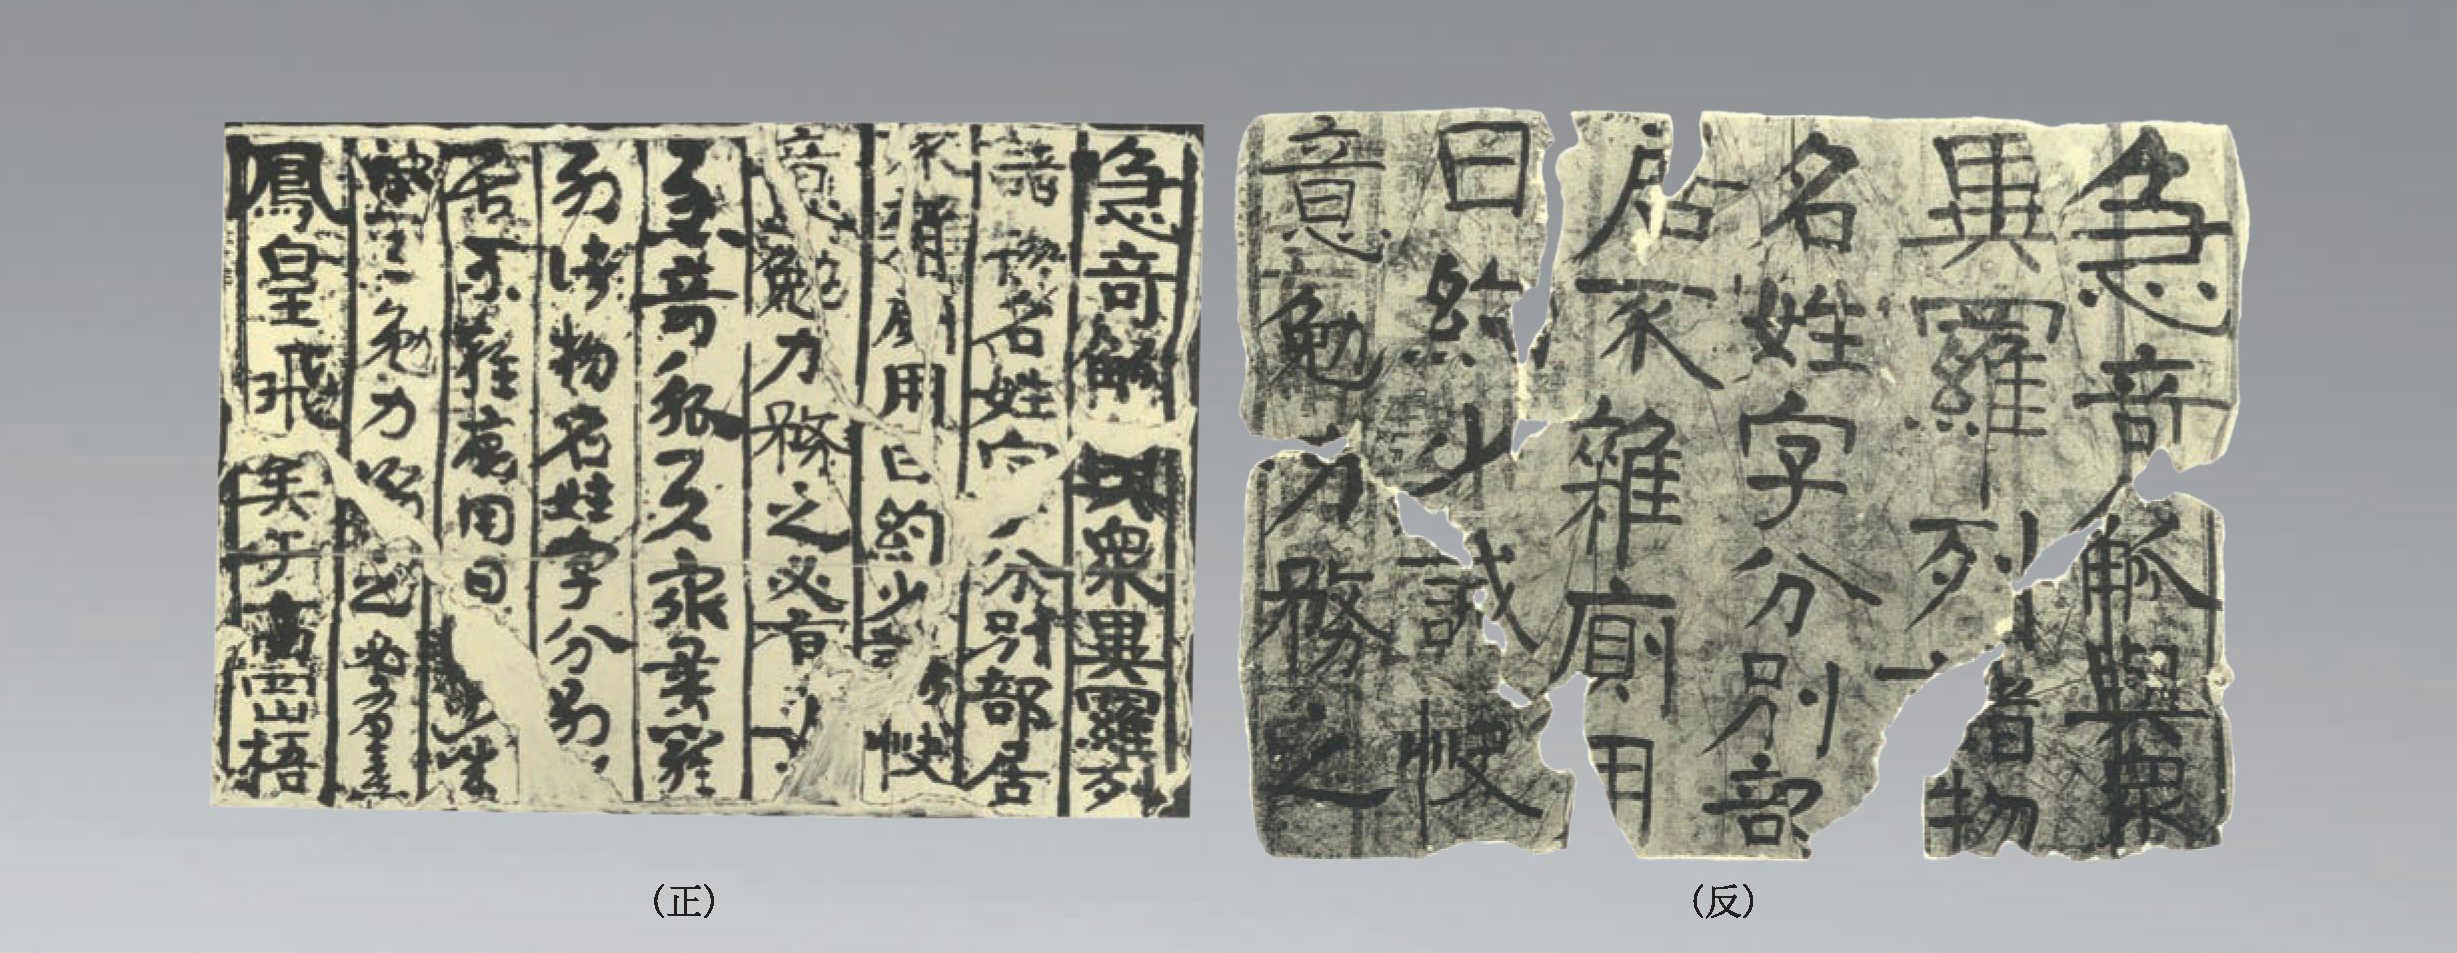 急奇觚與眾異羅列
諸物名姓字分別部居
不雜廁用日約少誠快
意勉力務之必有
急奇觚與眾異羅
列諸物名姓字分別
居不雜廁用日
意勉力務之必有憙
鳳皇飛矣于高岡梧
(正)
急奇觚與眾
異羅列諸物
名姓字分別部
居不雜廁用
日約少誠快
意勉力務之
(反)